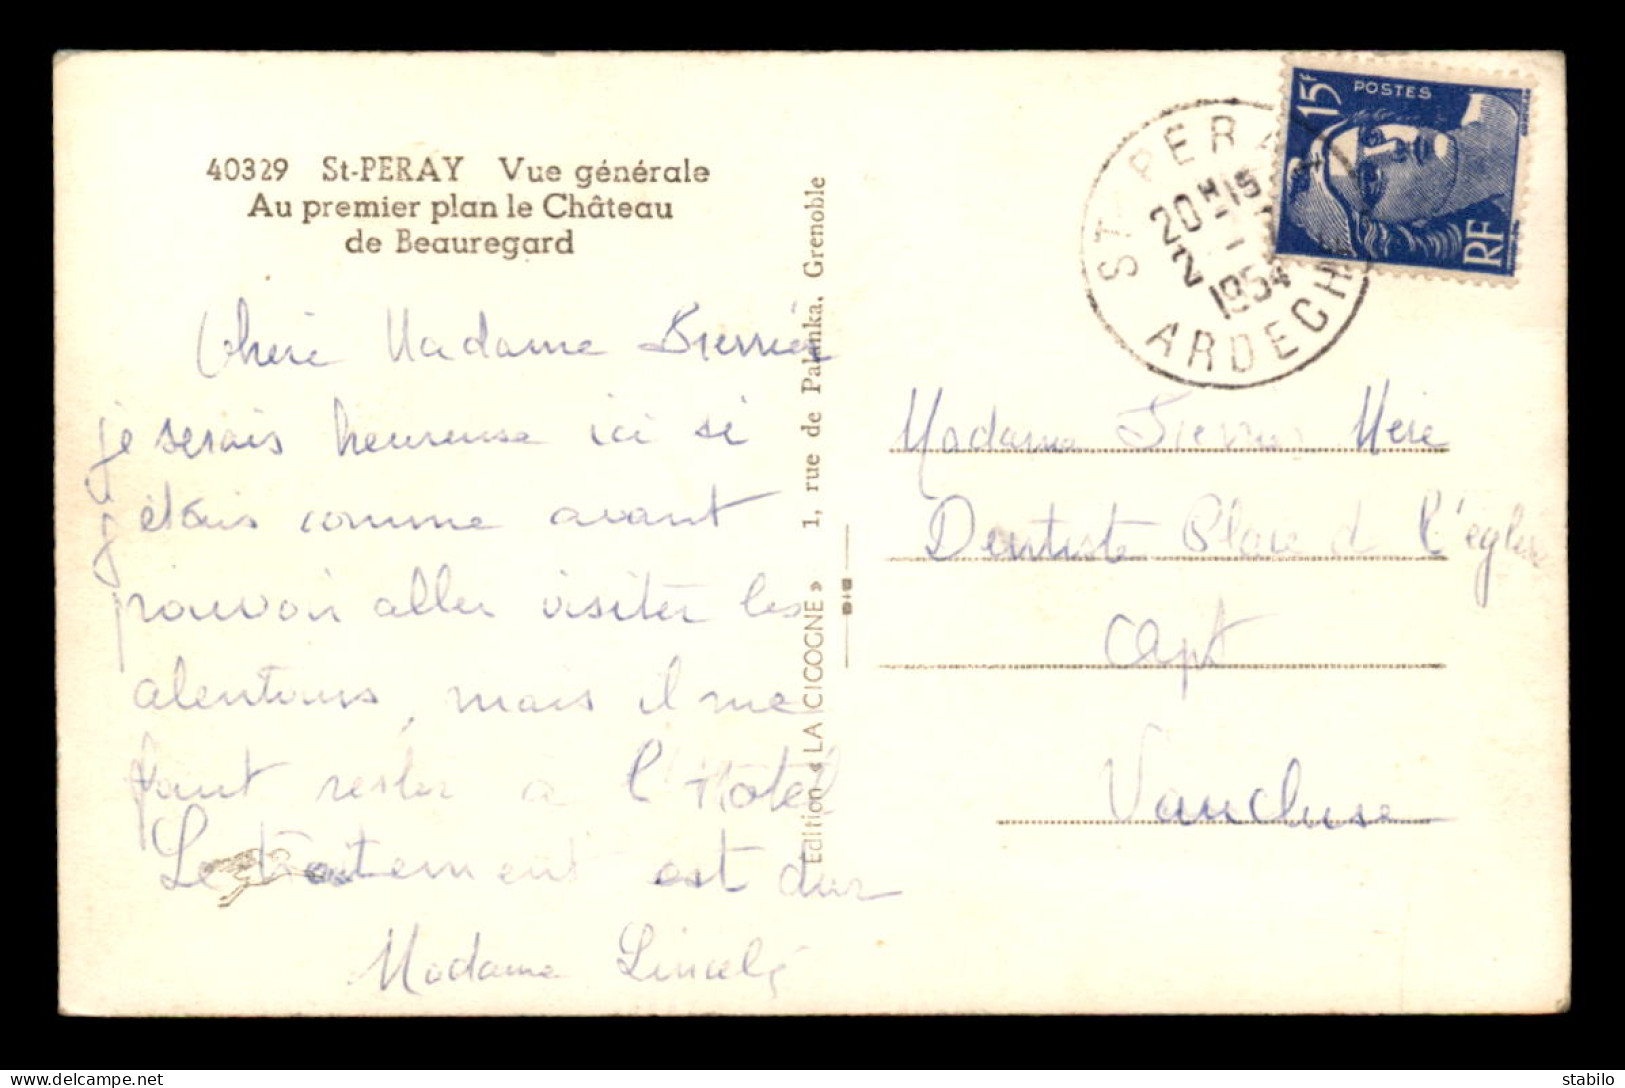 40329 St-PERAY Vue générale
Au premier plan le Château
de Beauregard
Chère Madame
je serais heureuse ici si
j'étais comme avant
pouvoir aller visiter les
alentours, mais il me
faut rester à l'Hôtel
Le traitement est dur
Madame
Edition « LA CICOGNE » 1, rue de Palanka, Grenoble
ST PERAY
20H15
2 - 1
1954
ARDECHE
15F
POSTES
RF
Madame Mère
Dentiste Place de l'église
Apt
Vaucluse
stabilo